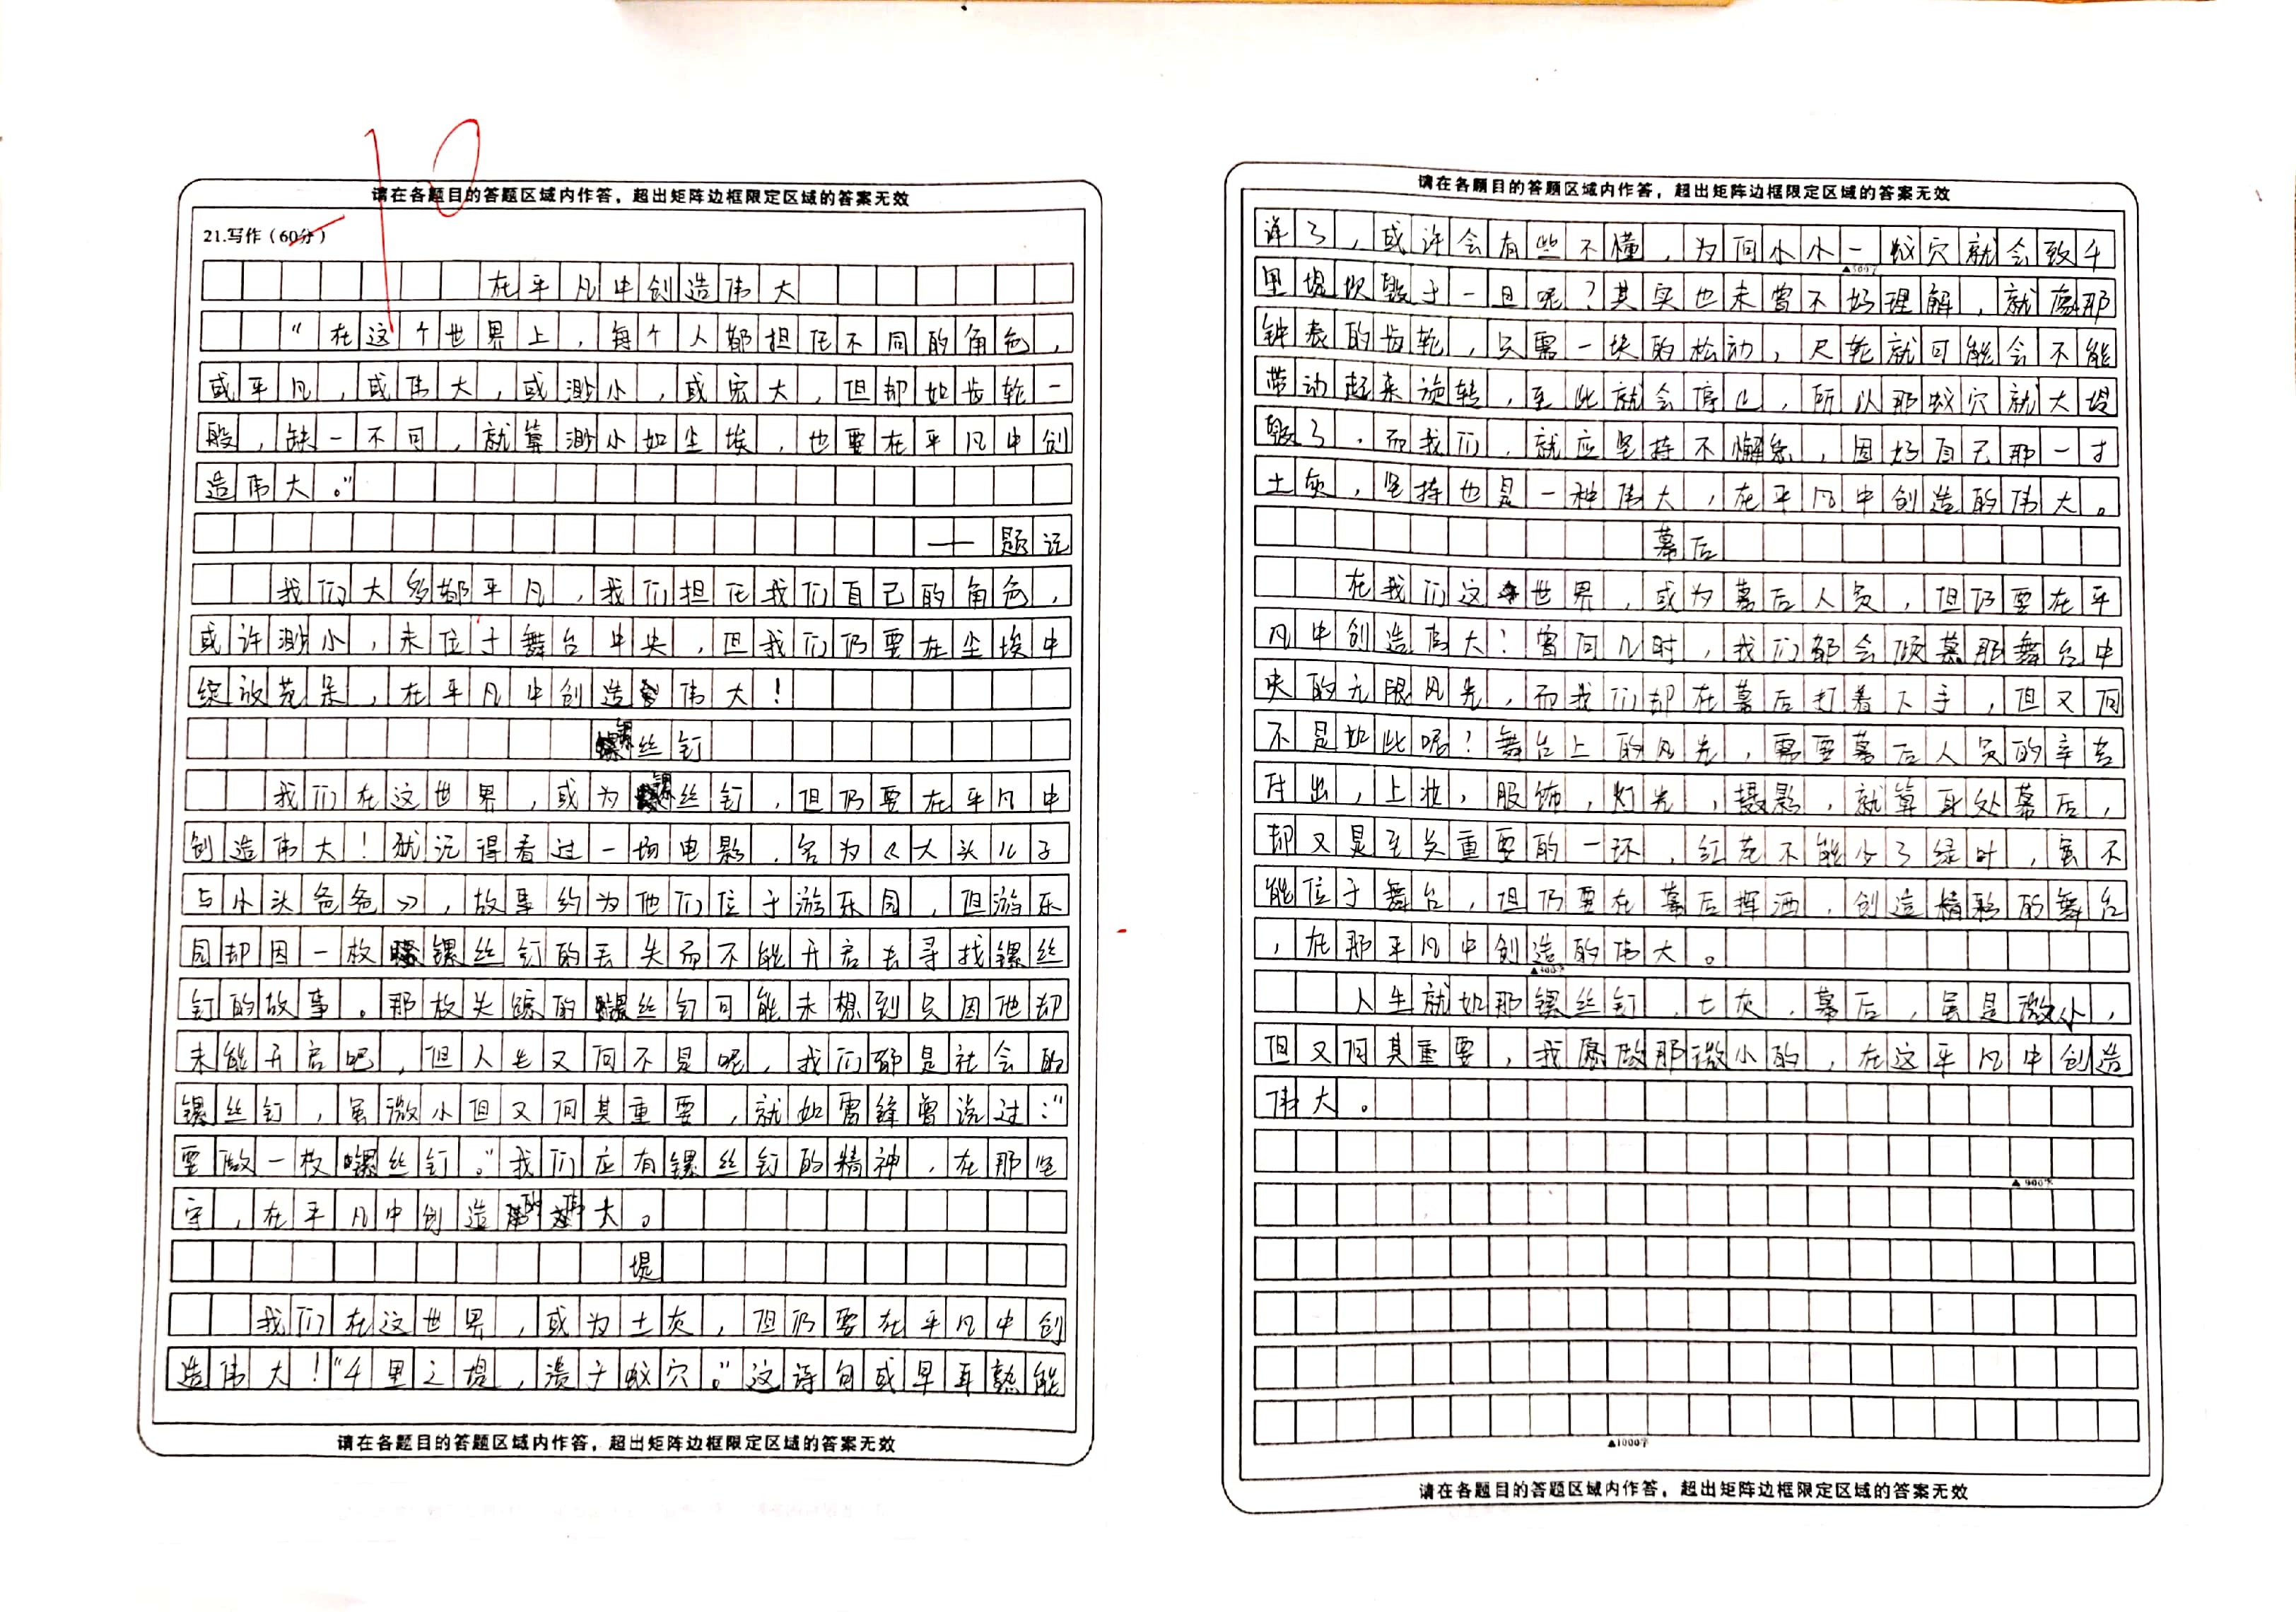 -10
请在各题目的答题区域内作答，超出矩阵边框限定区域的答案无效
21.写作（60分）
在平凡中创造伟大
“在这个世界上，每个人都担任不同的角色，
或平凡，或伟大，或渺小，或宏大，但却如齿轮一
般，缺一不可，就算渺小如尘埃，也要在平凡中创
造伟大。”
——题记
我们大多都平凡，我们担任我们自己的角色，
或许渺小，未位于舞台中央，但我们仍要在尘埃中
绽放花朵，在平凡中创造伟大！
镙丝钉
我们在这世界，或为镙丝钉，但仍要在平凡中
创造伟大！犹记得看过一场电影，名为《大头儿子
与小头爸爸》，故事约为他们位于游乐园，但游乐
园却因一枚镙丝钉的丢失而不能开启去寻找镙丝
钉的故事。那枚失踪的镙丝钉可能未想到只因他却
未能开启吧，但人生又何不是呢，我们都是社会的
镙丝钉，虽微小但又何其重要，就如雷锋曾说过：“
要做一枚螺丝钉。”我们应有镙丝钉的精神，在那坚
守，在平凡中创造的伟大。
堤
我们在这世界，或为土灰，但仍要在平凡中创
造伟大！“千里之堤，溃于蚁穴。”这诗句或早耳熟能
请在各题目的答题区域内作答，超出矩阵边框限定区域的答案无效
请在各题目的答题区域内作答，超出矩阵边框限定区域的答案无效
详了，或许会有些不懂，为何小小一蚁穴就会致千
▲500字
里堤坝毁于一旦呢？其实也未曾不好理解，就像那
钟表的齿轮，只需一块的松动，尺轮就可能会不能
带动起来旋转，至此就会停止，所以那蚁穴就大堤
毁了，而我们，就应坚持不懈怠，固好自己那一寸
土灰，坚持也是一种伟大，在平凡中创造的伟大。
幕后
在我们这世界，或为幕后人员，但仍要在平
凡中创造伟大！曾何几时，我们都会倾慕那舞台中
央的无限风光，而我们却在幕后打着下手，但又何
不是如此呢？舞台上的风光，需要幕后人员的辛苦
付出，上妆，服饰，灯光，摄影，就算身处幕后，
却又是至关重要的一环，红花不能少了绿叶，虽不
能位于舞台，但仍要在幕后挥洒，创造精彩的舞台
，在那平凡中创造的伟大。
人生就如那镙丝钉，土灰，幕后，虽是微小，
但又何其重要，我愿做那微小的，在这平凡中创造
伟大。
▲900字
▲1000字
请在各题目的答题区域内作答，超出矩阵边框限定区域的答案无效